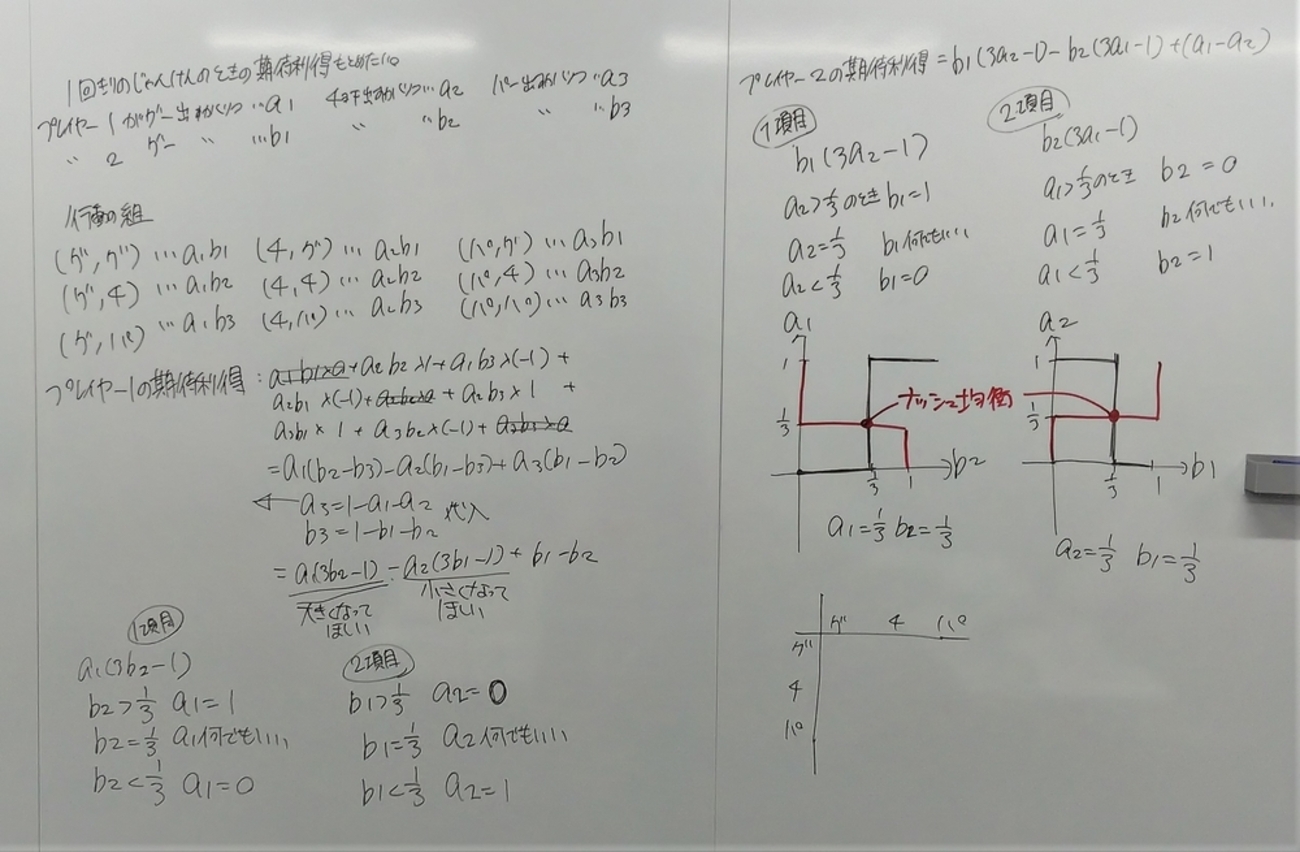 1回きりのじゃんけんのときの期待利得もとめたい。
プレイヤー1がグー出すかくりつ…a1 チョキ出すかくりつ…a2 パー出すかくりつ…a3
〃 2 グー 〃 …b1 〃 〃b2 〃 〃b3
行動の組
(グ,グ)…a1b1 (チ,グ)…a2b1 (パ,グ)…a3b1
(グ,チ)…a1b2 (チ,チ)…a2b2 (パ,チ)…a3b2
(グ,パ)…a1b3 (チ,パ)…a2b3 (パ,パ)…a3b3
プレイヤー1の期待利得:a1b1×0+a2b2×1+a1b3×(-1)+
a2b1×(-1)+a2b2×0+a2b3×1+
a3b1×1+a3b2×(-1)+a3b3×0
=a1(b2-b3)-a2(b1-b3)+a3(b1-b2)
a3=1-a1-a2
b3=1-b1-b2 代入
=a1(3b2-1)-a2(3b1-1)+b1-b2
大きくなって
ほしい
小さくなって
ほしい
1項目
a1(3b2-1)
b2>1/3 a1=1
b2=1/3 a1何でもいい
b2<1/3 a1=0
2項目
b1>1/3 a2=0
b1=1/3 a2何でもいい
b1<1/3 a2=1
プレイヤー2の期待利得=b1(3a2-1)-b2(3a1-1)+(a1-a2)
1項目
b1(3a2-1)
a2>1/3のとき b1=1
a2=1/3 b1何でもいい
a2<1/3 b1=0
2項目
b2(3a1-1)
a1>1/3のとき b2=0
a1=1/3 b2何でもいい.
a1<1/3 b2=1
a1
1
1/3
1/3
1
b2
ナッシュ均衡
a2
1
1/3
1/3
1
b1
a1=1/3 b2=1/3
a2=1/3 b1=1/3
グ チ パ
グ
チ
パ